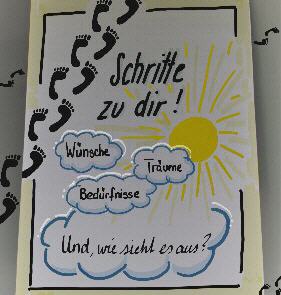 Schritte
zu dir!
Wünsche
Träume
Bedürfnisse
Und, wie sieht es aus?